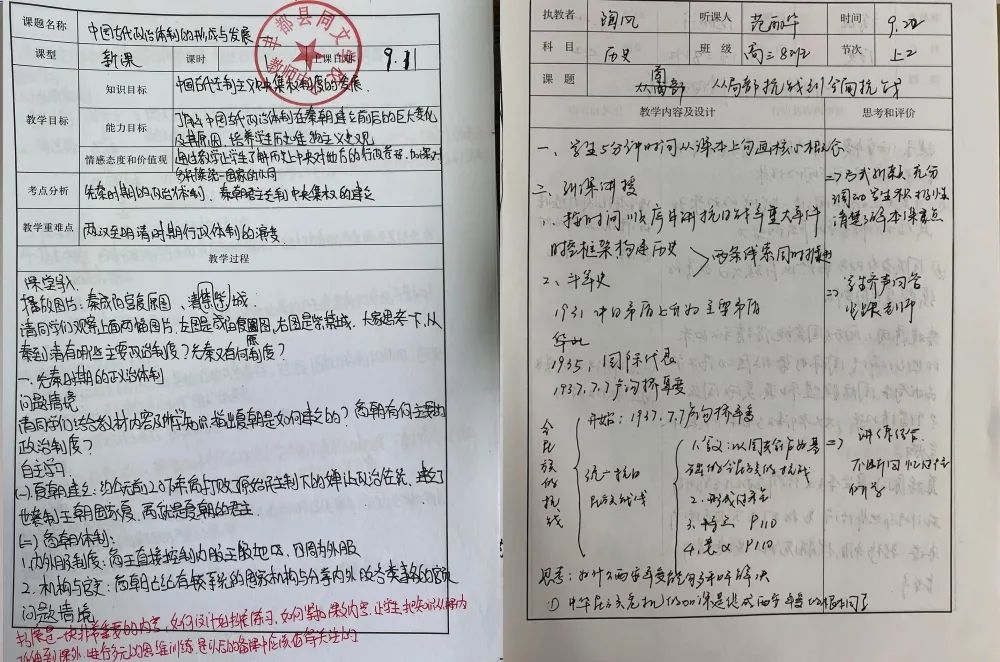 课题名称 中国古代政治体制的形成与发展
课型 新课 课时 上课日期 9.1
丰都县同文学校
教学目标
知识目标 中国古代君主专制中央集权制度的发展.
能力目标 了解中国古代政治体制在秦朝建立前后的巨大变化
及其原因，培养学生历史唯物主义史观
情感态度和价值观 通过教学让学生了解历史上中央对地方的行政管理，加深对
国家的认同
考点分析 先秦时期的政治体制，秦朝君主专制中央集权的建立
教学重难点 两汉至明清时期行政体制的演变.
教学过程
课堂导入
播放图片：秦咸阳宫复原图，清紫禁城.
请同学们观察上面两幅图片，左图是咸阳宫复原图，右图是紫禁城，大家思考下，从
秦到清有哪些主要政治制度？先秦又有何制度？
一.先秦时期的政治体制
问题情境
请同学们结合教材内容及所学知识，指出夏朝是如何建立的？商朝有何主要的
政治制度？
自主学习
(一).夏朝建立：约公元前2070年禹打败了原始民主制下的禅让政治传统，建立了
世袭制王朝国家夏，
(二)商朝体制：
1.内外服制度：商王直接控制内服王畿地区，四周为外服
2.机构与官吏：商朝已经有较系统的国家机构与分掌内外服各类事务的官员
问题情境
拓展是一块非常重要的内容，如何设计好拓展练习，如何掌握课外内容，让学生把知识从课内
延伸到课外，进行多元的思维训练，是以后的备课中应该值得关注的
执教者 陶风 听课人 范丽华 时间 9.20
科目 历史 班级 高二8班 节次 上2
课题 从局部抗战到全面抗战
教学内容及设计 思考和评价
一、学生5分钟时间从课本上勾画核心概念
二、新课讲授
1、按时间顺序串讲抗日战争重大事件
时空框架构建历史
两条线索同时推进
2、斗争史
1931 中日矛盾上升为主要矛盾
华北
1935.
1937.7.7卢沟桥事变
全民族的抗战
开始：1937.7.7卢沟桥事变
统一抗日
民族战线
2.形成
3. P110
4.意义 P110
充分
调动学生积极性
=> 学生齐声回答
=> 讲练结合
思考：为什么西安事变能够和平解决
① 中华民族危机的加深是促成西安事变的根本原因